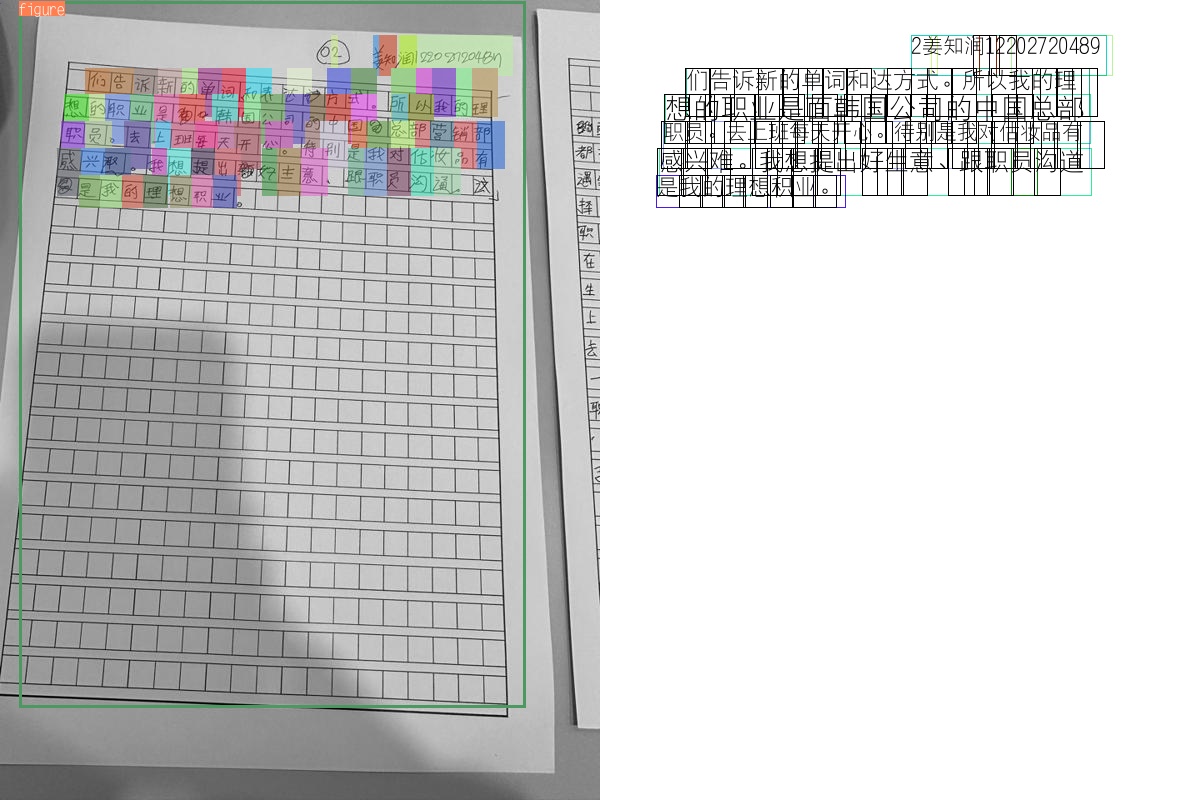 figure
02 姜知润12202720489
们告诉新的单词和表达方式。所以我的理
想的职业是韩国公司的中国总部营销部
职员。去上班每天开心。特别是我对化妆品有
感兴趣。我想提出好主意、跟职员沟通。这
是我的理想职业。
2姜知润12202720489
们告诉新的单词和达方式。所以我的理
想的职业是面韩国公司的中国总部
职员。去上班每天开心。待别是我对估妆品有
感兴难。我想提出好生意、跟职员沟道
是我的理想积业。
都
遇
择
职
在
生
上
去
一
职